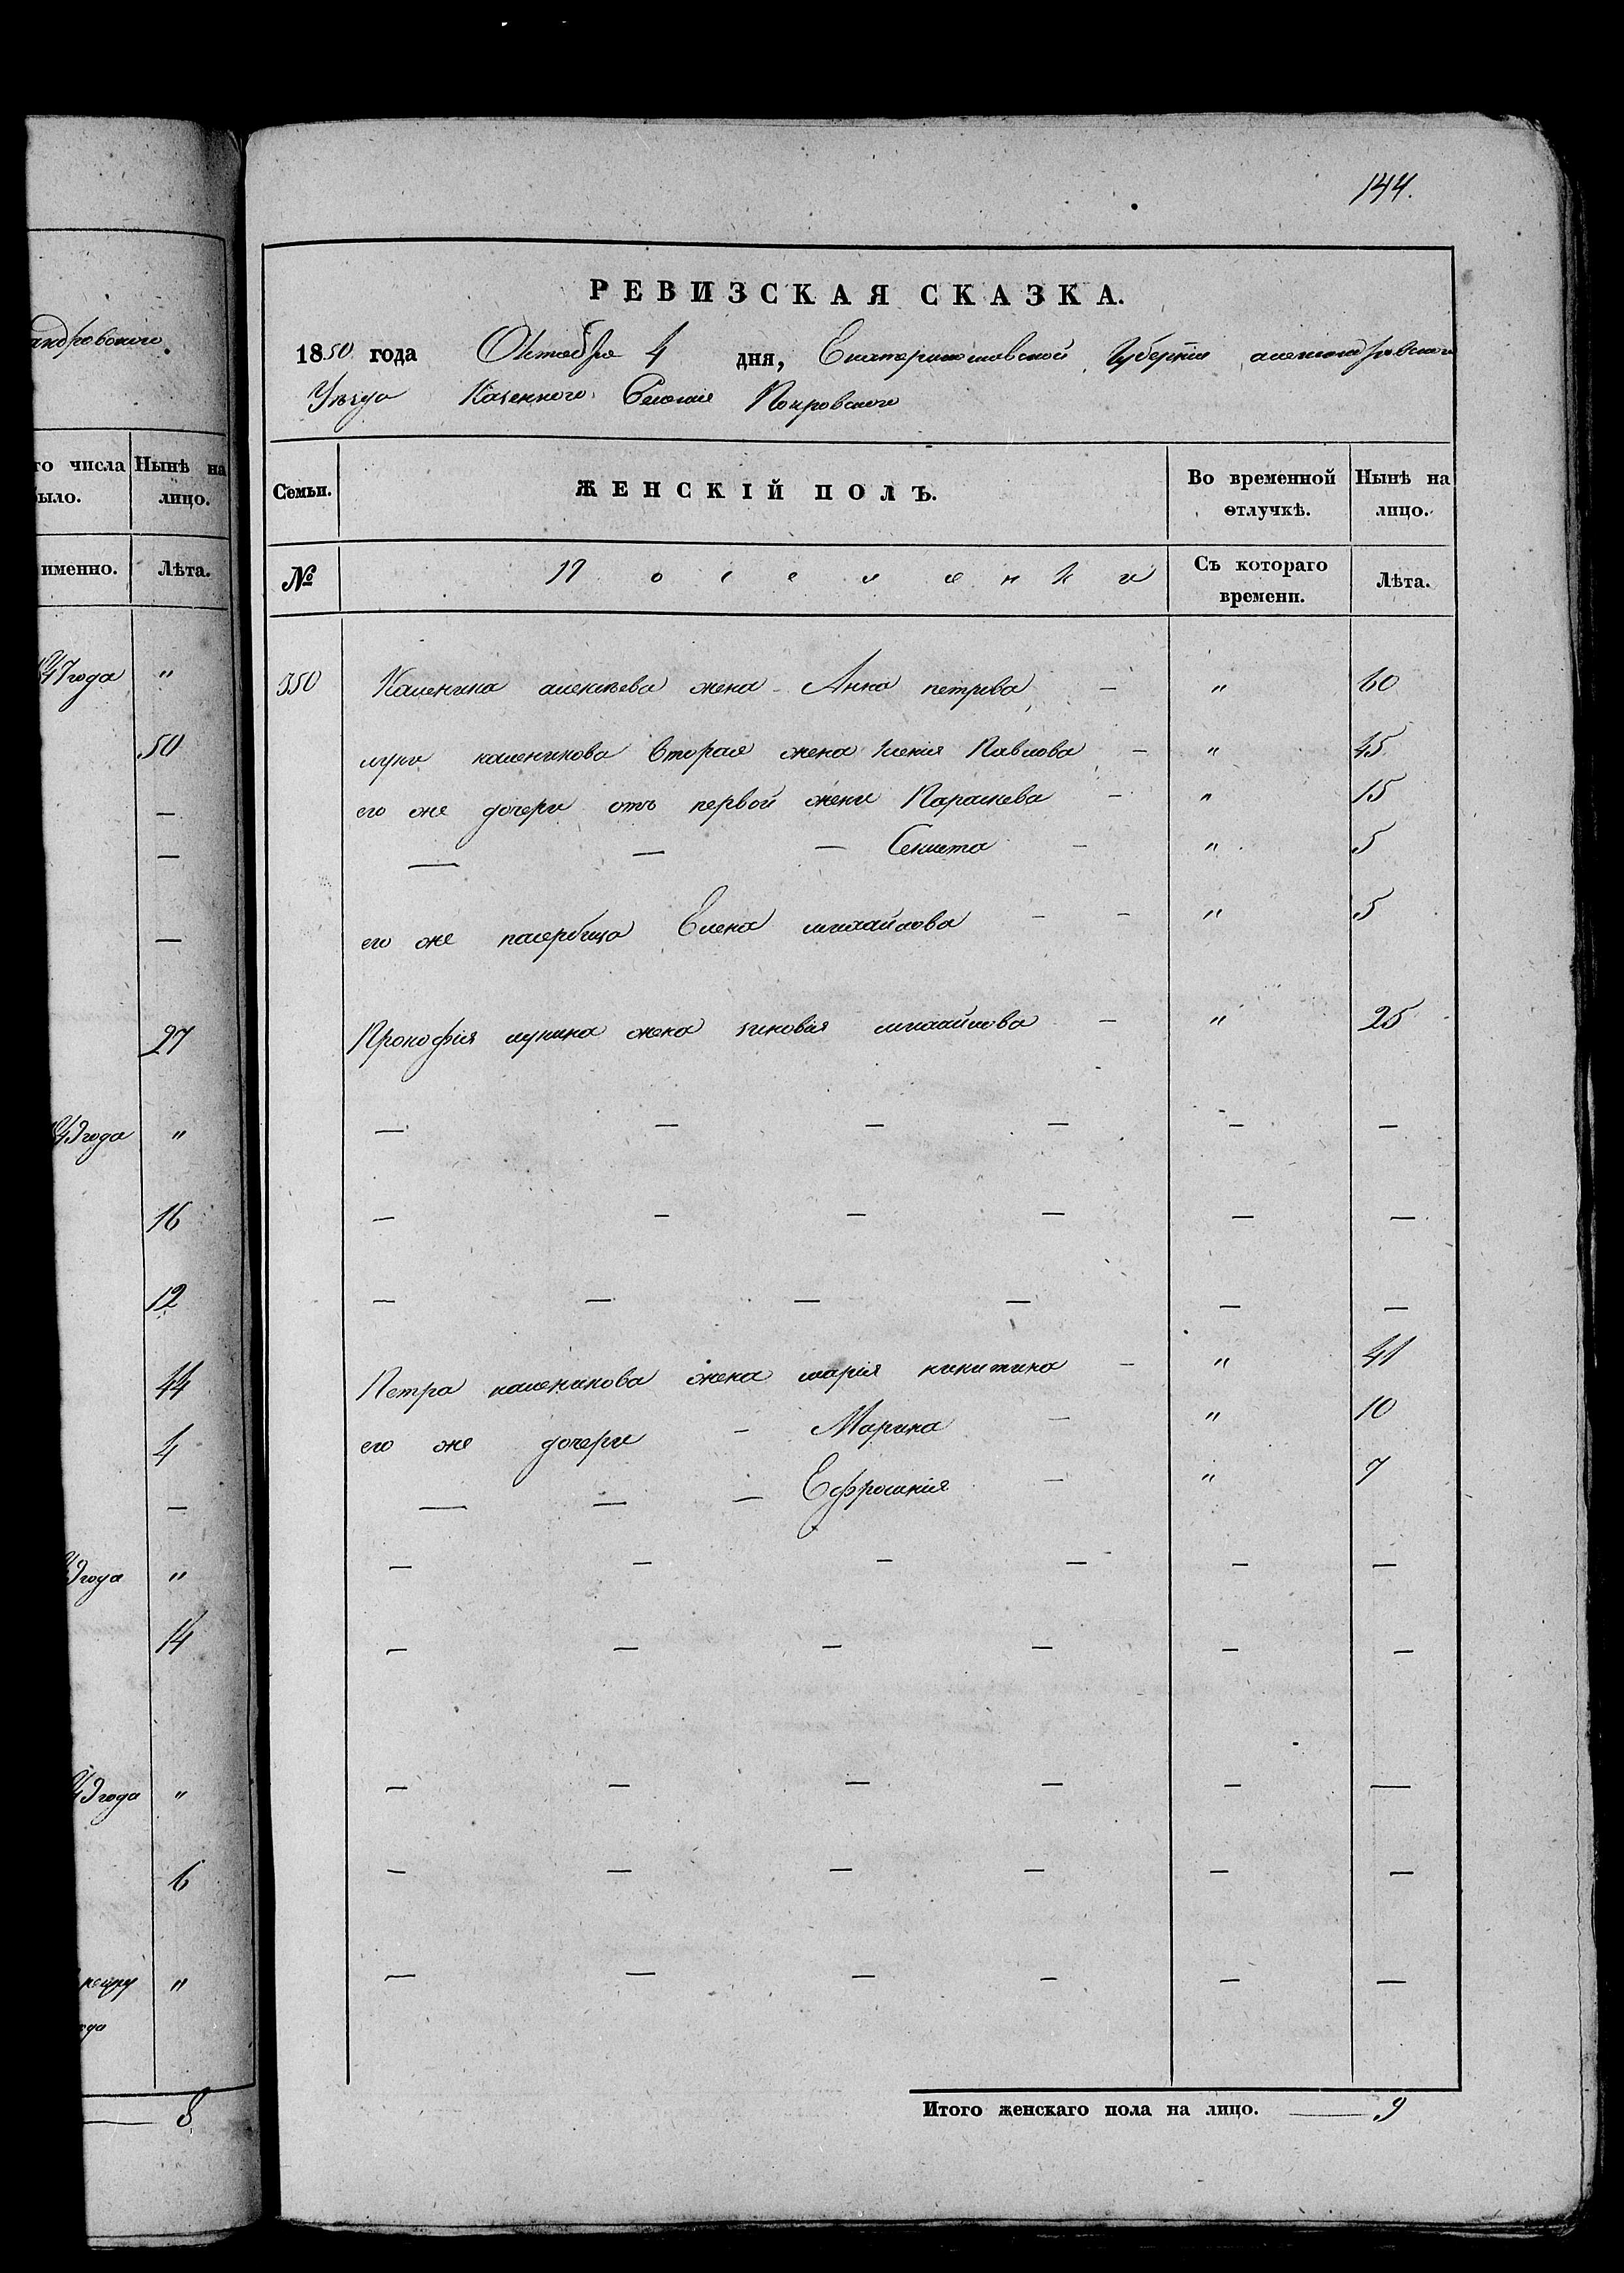 андровского
го числа Нынѣ на
было. лицо.
именно. Лѣта.
47 года "
50
—
—
—
27
49 года "
16
12
44
4
—
49 года "
14
49 года "
6
"
года
8
144.
РЕВИЗСКАЯ СКАЗКА.
1850 года Октября 4 дня, Екатеринославской Губерніи александровского
Уѣзда Казенного Селенія Покровского
Семьи. ЖЕНСКІЙ ПОЛЪ. Во временной отлучкѣ. Нынѣ на лицо.
№ Поселенки Съ котораго времени. Лѣта.
350 Каленика алексѣева жена - Анна петрова — " 60
луки каленикова вторая жена ксенія Павлова — " 45
его же дочери отъ первой жени Параскева — " 15
— — — Секлета — " 5
его же пасербица Елена михайлова — — " 5
Прокофія лукина жена зиновія михайлова — " 25
— — — — — —
— — — — — —
— — — — — —
Петра каленикова жена марія никитина — " 41
его же дочери — Марина — " 10
— — — Ефросинія — " 7
— — — — — —
— — — — — —
— — — — — —
— — — — — —
— — — — — —
Итого женскаго пола на лицо. — 9